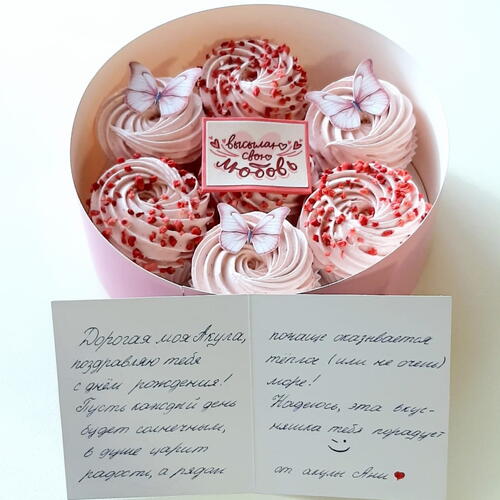 высылаю
свою
любовь
Дорогая моя Акула,
поздравляю тебя
с днём рождения!
Пусть каждый день
будет солнечным,
в душе царит
радость, а рядом
почаще оказывается
тёплое (или не очень)
море!
Надеюсь, эта вкус-
няшка тебя порадует
от акулы Ани